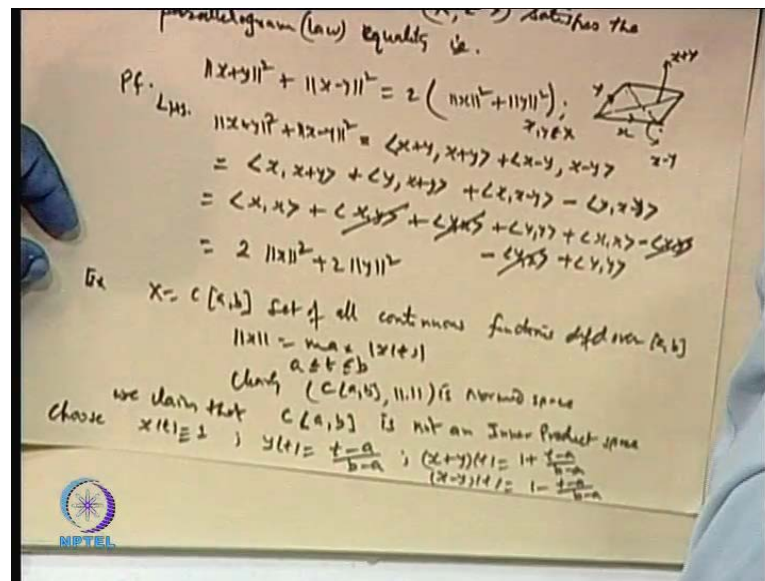 parallelogram (law) equality ie. satisfies the
||x+y||² + ||x-y||² = 2 ( ||x||² + ||y||² ); x,y∈X
Pf. LHS. ||x+y||² + ||x-y||² = <x+y, x+y> + <x-y, x-y>
= <x, x+y> + <y, x+y> + <x, x-y> - <y, x-y>
= <x, x> + <x,y> + <y,x> + <y,y> + <x,x> - <x,y>
- <y,x> + <y,y>
= 2 ||x||² + 2 ||y||²
y x x+y x-y
Ex X = C[a,b] set of all continuous functions defd over [a,b]
||x|| = max |x(t)|
a ≤ t ≤ b
Clearly (C[a,b], ||.||) is normed space
we claim that C[a,b] is not an Inner Product space
Choose x(t) = 1 ; y(t) = t-a/b-a ; (x+y)(t) = 1 + t-a/b-a
(x-y)(t) = 1 - t-a/b-a
NPTEL